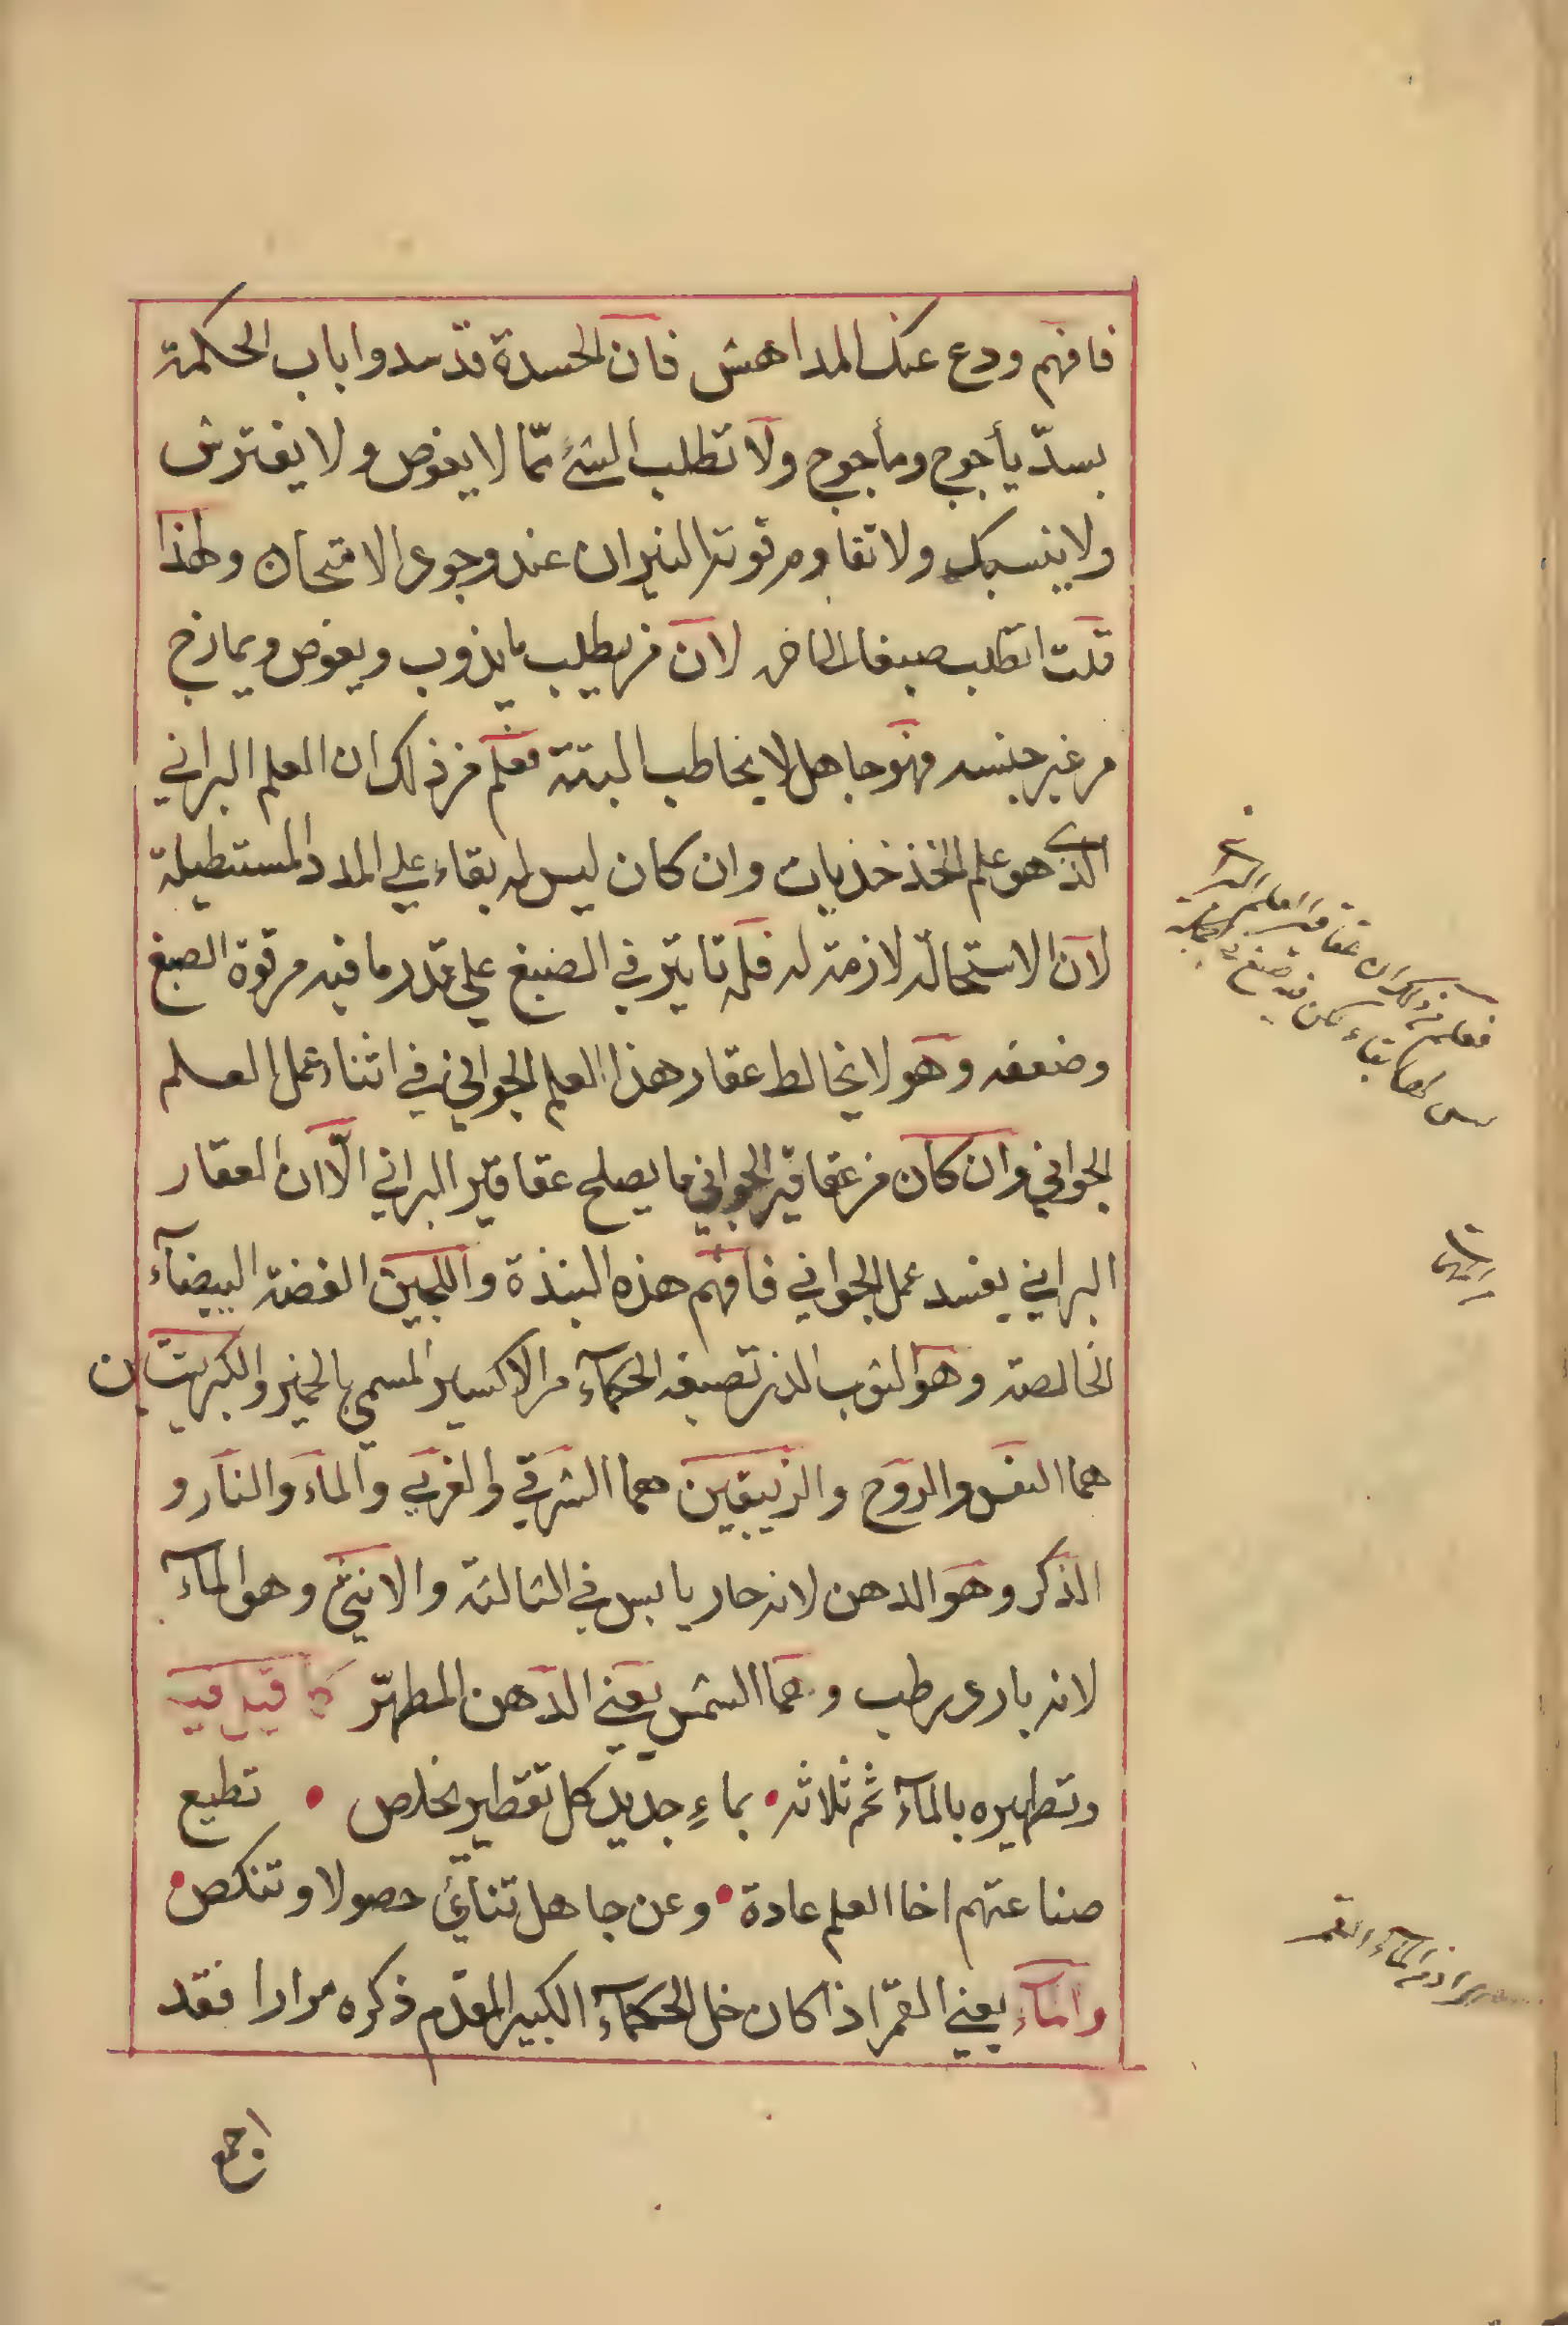 فافهم ودع عنك المداهش فان الحسدة قد سدوا باب الحكمة
بسدّ يأجوج ومأجوج ولا تطلب الشئ ممّا لا يغوص ولا يفترش
ولا ينسبك ولا تقاوم قوته النيران عند وجود الامتحان ولهذا
قلت اتطلب صبغا لان من يطلب ما يذوب ويغوص ويمازج
من غير جنسه فهو جاهل لا يخاطب البتة فعلم من ذلك ان العلم البراني
الذى هو علم الخذخذيات وان كان ليس له بقاء على المدد المستطيلة
لان الاستحالة لازمة له فله تاثير في الصبغ على قدر ما فيه من قوة الصبغ
وضعفه وهو لا يخالط عقار هذا العلم الجواني في اثناء عمل العلم
الجواني وان كان من عقاقير الجواني ما يصلح عقاقير البراني الّا ان العقار
البراني يفسد عمل الجواني فافهم هذه النبذة واللجين الفضة البيضآء
الخالصة وهو الثوب الذى تصبغه الحكمآء من الاكسير المسمي بالخمير والكبريتان
هما النفس والروح والزيبقين هما الشرقي والغربي والماء والنار و
الذكر وهو الدهن لانه حار يابس في الثالثة والانثى وهو المآء
لانه بارد رطب وهما الشمس يعني الدهن المطهّر كما قيل فيه
وتطهيره بالمآء ثم ثلاثة • بماءٍ جديد كل تقطير يخلص • تطيع
صناعتهم اخا العلم عادة • وعن جاهل تنأى حصولا وتنكص •
والمآء يعني القمر اذا كان خل الحكمآء الكبير المقدّم ذكره مرارا فقد
فعلم من ذلك ان عقاقير العلم البراني
ليس لها بقاء لكن فيه صبغ
المآء القمر
اجمع